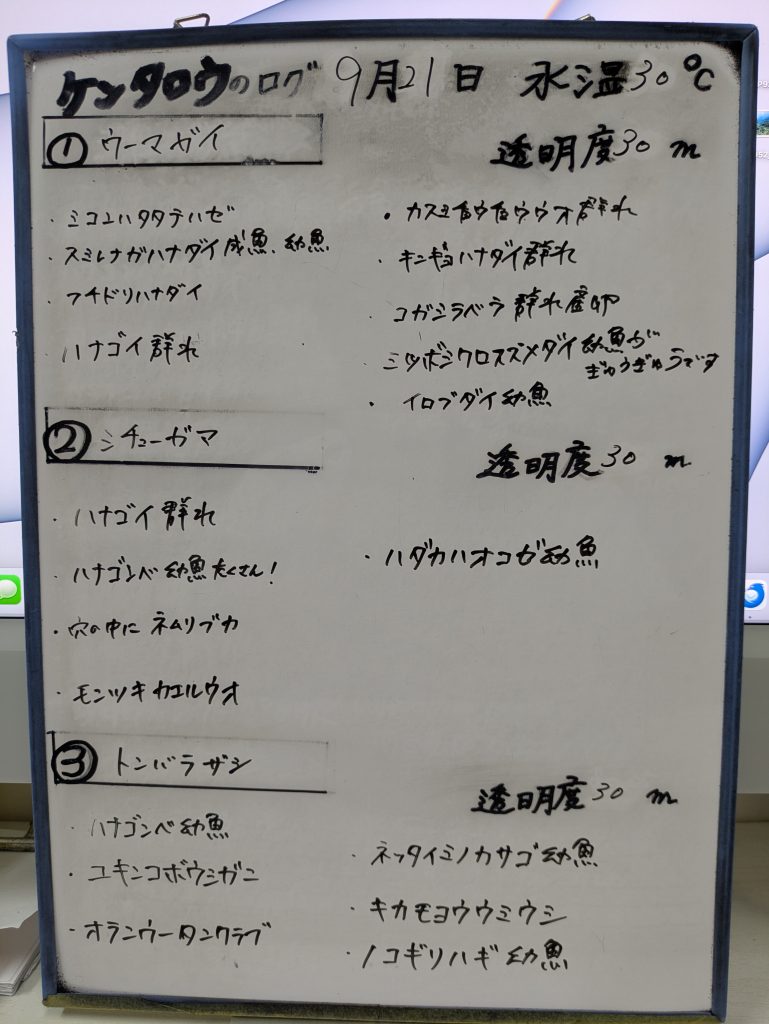 ケンタロウのログ 9月21日 水温30℃
① ウーマガイ
透明度30 m
・ミコユハタタテハゼ
・スミレナガハナダイ成魚、幼魚
・フチドリハナダイ
・ハナゴイ群れ
・カスミチョウチョウウオ群れ
・キンギョハナダイ群れ
・コガシラベラ群れ産卵
・ミツボシクロスズメダイ幼魚が
ぎゅうぎゅうです
・イロブダイ幼魚
② シチューガマ
透明度30 m
・ハナゴイ群れ
・ハナゴンベ幼魚たくさん!
・穴の中にネムリブカ
・モンツキカエルウオ
・ハダカハオコゼ幼魚
③ トンバラザシ
透明度30 m
・ハナゴンベ幼魚
・ユキンコボウシガニ
・オランウータンクラブ
・ネッタイミノカサゴ幼魚
・キカモヨウウミウシ
・ノコギリハギ幼魚